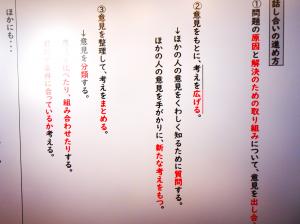 話し合いの進め方
①問題の原因と解決のための取り組みについて、意見を出し合
②意見をもとに、考えを広げる。
↓ほかの人の意見をくわしく知るために質問する。
ほかの人の意見を手がかりに、新たな考えをもつ。
③意見を整理して、考えをまとめる。
↓意見を分類する。
べたり、組み合わせたりする。
に合っているか考える。
ほかにも・・・